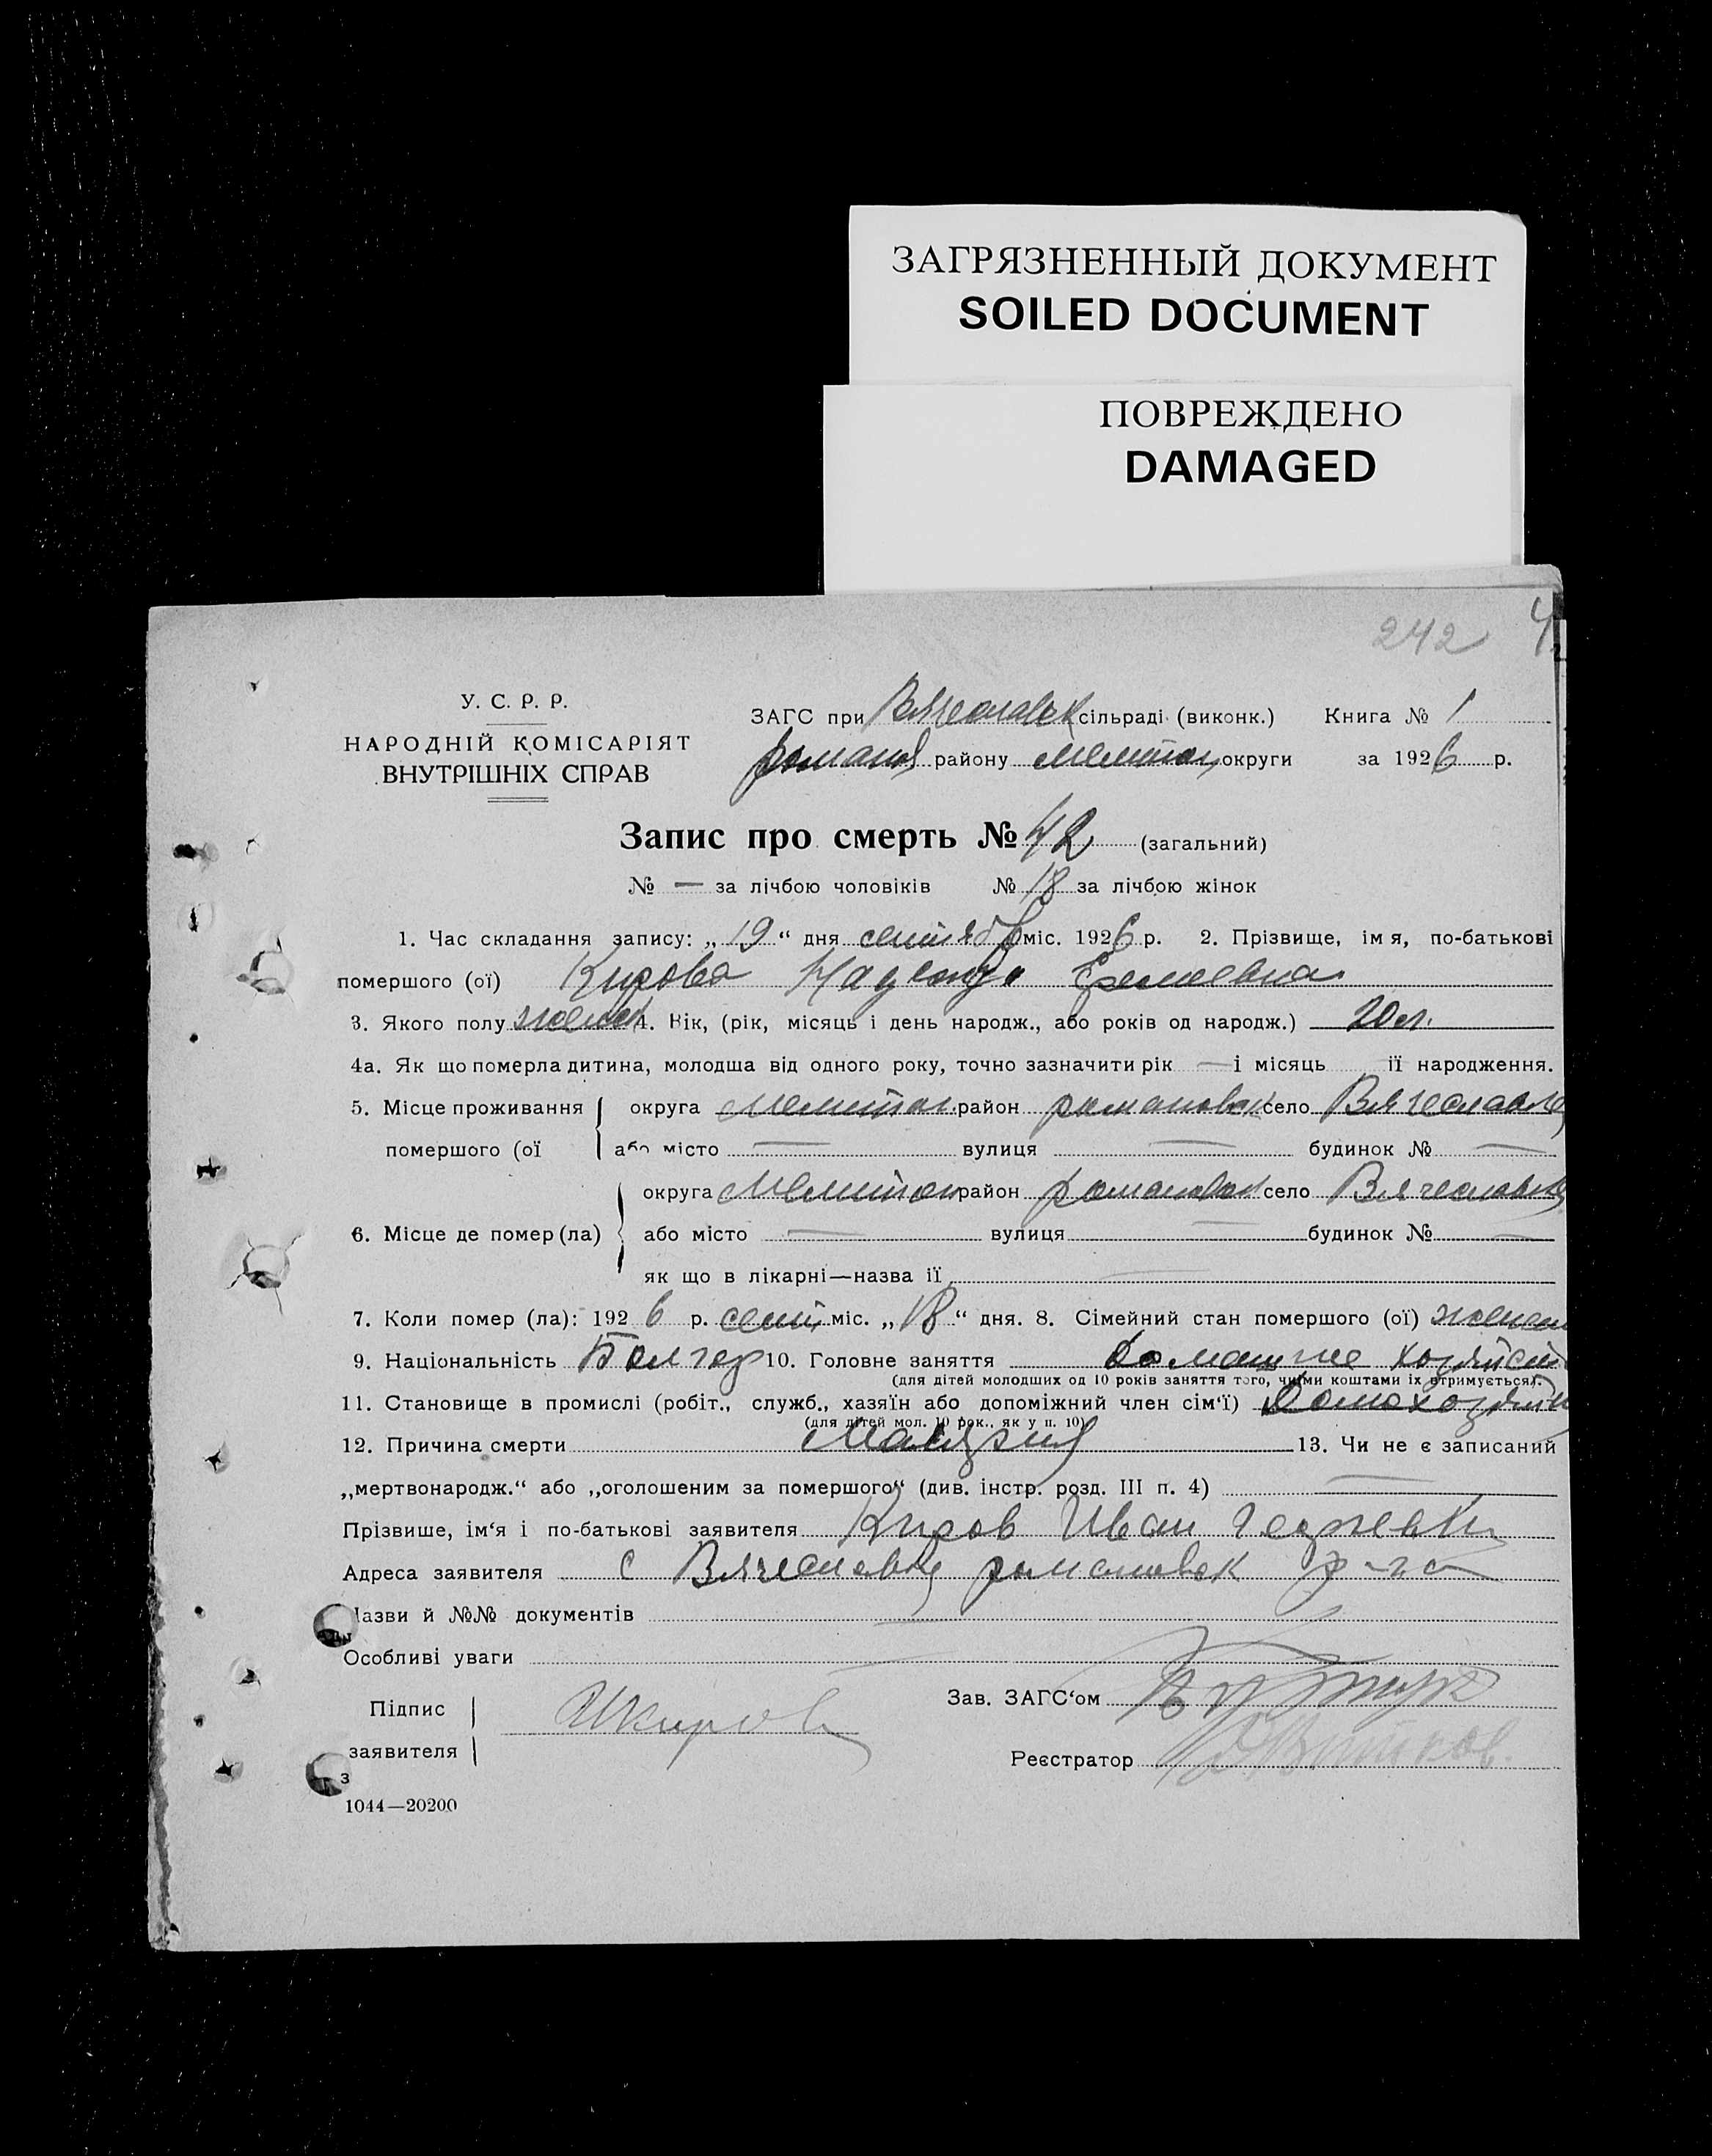 ЗАГРЯЗНЕННЫЙ ДОКУМЕНТ
SOILED DOCUMENT
ПОВРЕЖДЕНО
DAMAGED
242
У. С. Р. Р.
НАРОДНІЙ КОМІСАРІЯТ
ВНУТРІШНІХ СПРАВ
ЗАГС при Вячеславск сільраді (виконк.) Книга № 1
району Мелитоп округи за 1926 р.
Запис про смерть № 42 (загальний)
№ — за лічбою чоловіків № 18 за лічбою жінок
1. Час складання запису: „19“ дня сентября міс. 1926 р. 2. Прізвище, імя, по-батькові
помершого (ої) Кирова Надежда
3. Якого полу женск 4. Вік, (рік, місяць і день народж., або років од народж.) 20 л.
4а. Як що померла дитина, молодша від одного року, точно зазначити рік — і місяць її народження.
5. Місце проживання помершого (ої округа Мелитоп. район романовск село Вячеславка
або місто — вулиця — будинок № —
6. Місце де помер (ла) округа Мелитоп район романовск село Вячеславка
або місто — вулиця — будинок № —
як що в лікарні—назва її —
7. Коли помер (ла): 1926 р. сент міс. „18“ дня. 8. Сімейний стан помершого (ої)
9. Національність Болгар 10. Головне заняття Домашнее хозяйст
(для дітей молодших од 10 років заняття того, чиїми коштами їх втримується).
11. Становище в промислі (робіт., служб., хазяїн або допоміжний член сім‘ї)
(для дітей мол. 10 рок., як у п. 10)
12. Причина смерти Малярия 13. Чи не є записаний
„мертвонародж.“ або „оголошеним за помершого“ (див. інстр. розд. III п. 4) —
Прізвише, ім‘я і по-батькові заявителя Киров Иван
Адреса заявителя с Вячеславка романовск р-на
Назви й №№ документів —
Особливі уваги —
Підпис заявителя ИКиров
Зав. ЗАГС‘ом
Реєстратор
з
1044—20200